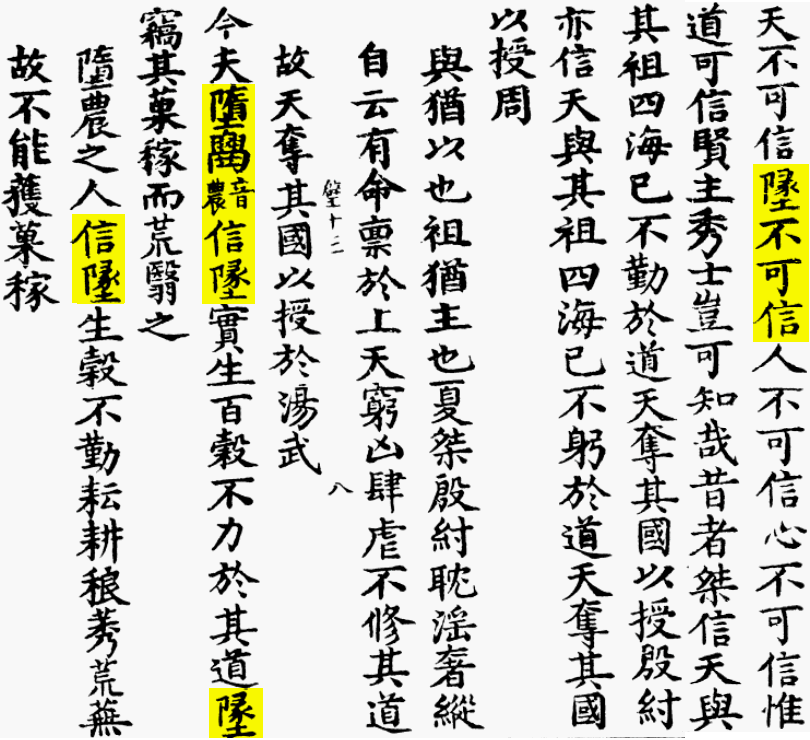 天不可信墬不可信人不可信心不可信惟
道可信賢主秀士豈可知哉昔者桀信天與
其祖四海已不勤於道天奪其國以授殷紂
亦信天與其祖四海已不躬於道天奪其國
以授周
與猶以也祖猶主也夏桀殷紂耽淫奢縱
自云有命稟於上天窮凶肆虐不修其道
十三
八
故天奪其國以授於湯武
今夫墯音農信墬實生百穀不力於其道墬
竊其菓稼而荒翳之
墯農之人信墬生穀不勤耘耕稂莠荒蕪
故不能獲菓稼